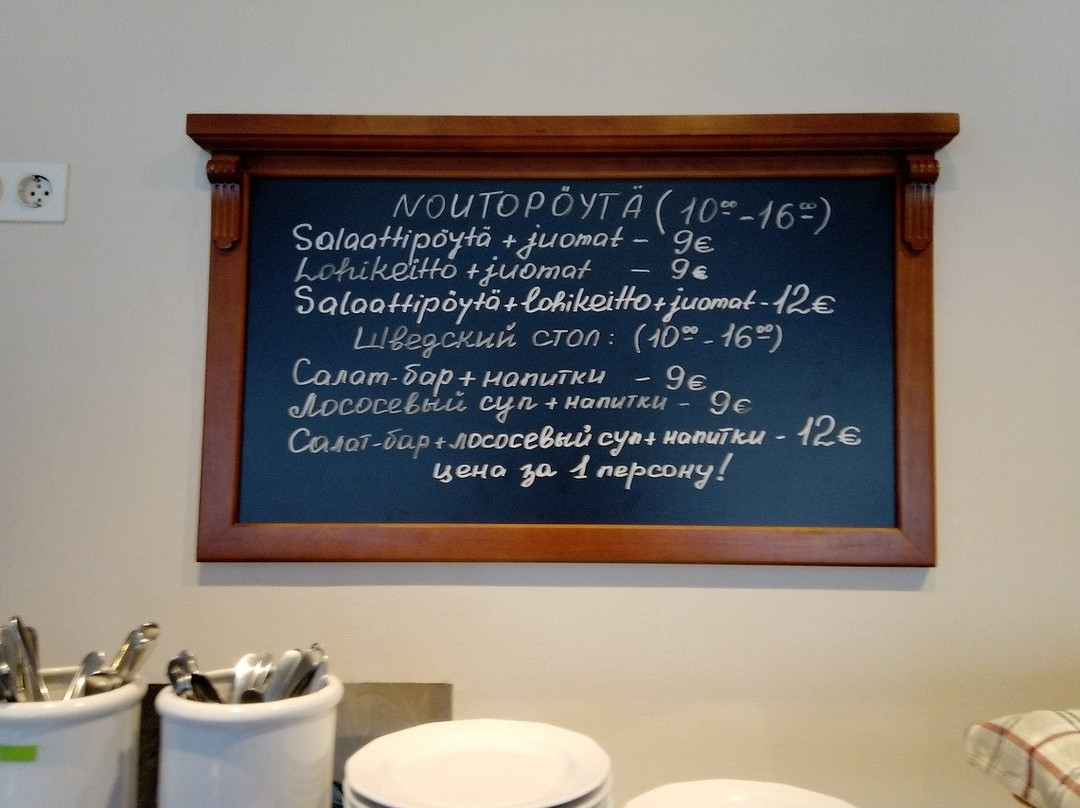 NOUTOPÖYTÄ (10⁰⁰-16⁰⁰)
Salaattipöytä + juomat - 9€
Lohikeitto + juomat - 9€
Salaattipöytä + lohikeitto + juomat - 12€
Шведский стол: (10⁰⁰-16⁰⁰)
Салат-бар + напитки - 9€
Лососевый суп + напитки - 9€
Салат-бар + лососевый суп + напитки - 12€
цена за 1 персону!